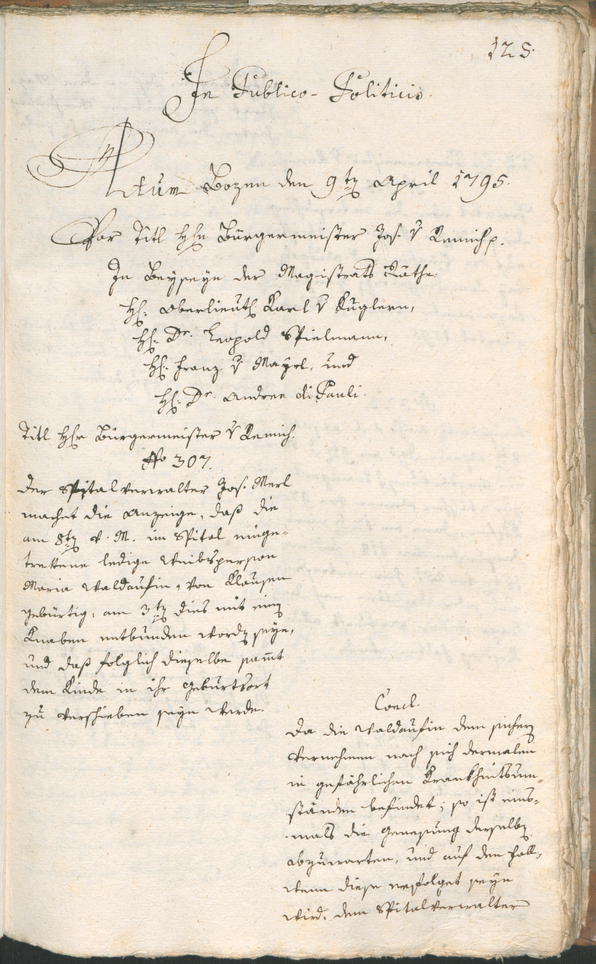 125.
In Publico-Politicis.
Actum Bozen den 9ten April 1795.
Vor Titl Hrn Bürgermeister Jos: v Remich p.
In Beyseyn der Magistrats Räthe
HH: Oberlieut: Karl v Kuglern,
HH: Dr. Leopold Spielmann,
HH: Franz v Mayrl, und
HH: Dr. Andree di Pauli.
Titl Hr Bürgermeister v Remich.
No 307.
Der Spitalverwalter Jos: Merl
machet die Anzeige, daß die
am 8ten v. M. im Spital einge-
trettene ledige Weibsperson
Maria Waldaufin, von Klausen
gebürtig, am 3ten dies mit einem
Knaben entbunden worden seye,
und daß folglich dieselbe sammt
dem Kinde in ihr Geburtsort
zu verschieben seyn werde.
Concl.
Da die Waldaufin dem sichern
Vernehmen nach sich dermalen
in gefährlichen Krankheitsum-
ständen befindet; so ist eins-
mals die Genesung derselben
abzuwarten, und auf den Fall,
wenn diese erfolget seyn
wird, dem Spitalverwalter